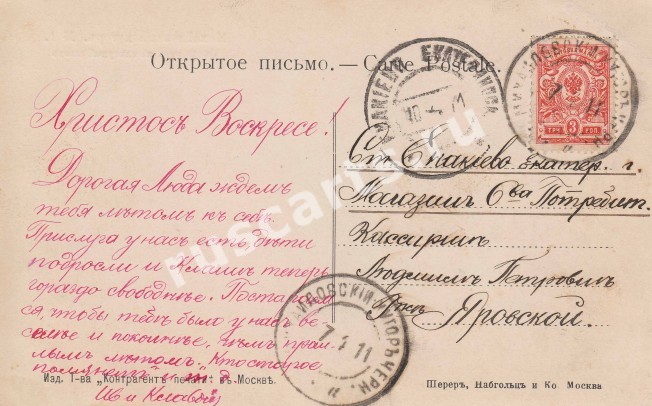 Открытое письмо. — Carte Postale.
Христосъ Воскресе!
Дорогая Люда ждемъ
тебя лѣтомъ къ себѣ.
Прислуга у насъ есть, дѣти
подросли и Клавіи теперь
гораздо свободнѣе. Постара
ся, чтобы тебѣ было у насъ ве
селѣе и покойнѣе, чѣмъ прош
лымъ лѣтомъ. „Кто старое
помянетъ" и т. д.
Ив и Клавдія
Ст. Енакіево Екатер. г.
Магазинъ О-ва Потребит.
Кассиршѣ
Людмилѣ Петровнѣ
Яровской.
ЕКАТЕРИНОСЛ
10 4 11
7 4 11
ТРИ 3 КОП
7 4 11
Изд. 1-ва „Контрагентъ печати" въ Москвѣ.
Шереръ, Набгольцъ и Ко Москва
ruscarts.ru